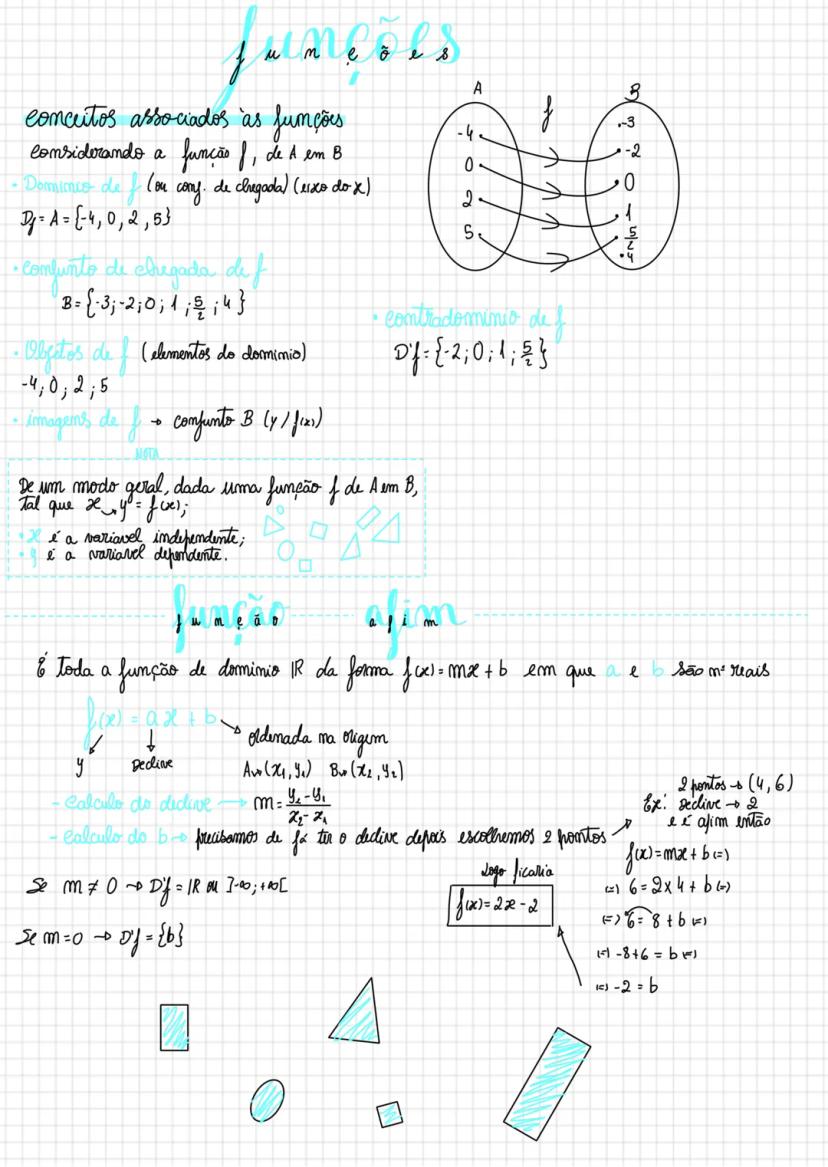 funções
A f B
-4 -3
0 -2
2 0
5 1
5/2
4
conceitos associados às funções
Considerando a função f, de A em B
• Dominio de f (ou conj. de chegada) (eixo do x)
Df = A = {-4, 0, 2, 5}
• conjunto de chegada de f
B = {-3; -2; 0; 1; 5/2; 4}
• contradominio de f
D'f = {-2; 0; 1; 5/2}
• Objetos de f (elementos do dominio)
-4; 0; 2; 5
• imagens de f → conjunto B (y / f(x))
NOTA
De um modo geral, dada uma função f de A em B,
tal que x → y = f(x);
• x é a variavel independente;
• y é a variavel dependente.
função afim
É toda a função de dominio IR da forma f(x) = mx + b em que a e b são nºs reais
f(x) = ax + b
y Declive Ordenada na origem
A→(x₁, y₁) B→(x₂, y₂)
- Calculo do declive → m = y₂ - y₁ / x₂ - x₁
- Calculo do b → precisamos de já ter o declive depois escolhemos 2 pontos
2 pontos → (4, 6)
Ex: Declive → 2
e é afim então
f(x) = mx + b (=)
(=) 6 = 2 x 4 + b (=)
(=) 6 = 8 + b (=)
(=) -8+6 = b (=)
(=) -2 = b
Logo ficaria
f(x) = 2x - 2
Se m ≠ 0 → D'f = IR ou ]-∞; +∞[
Se m = 0 → D'f = {b}